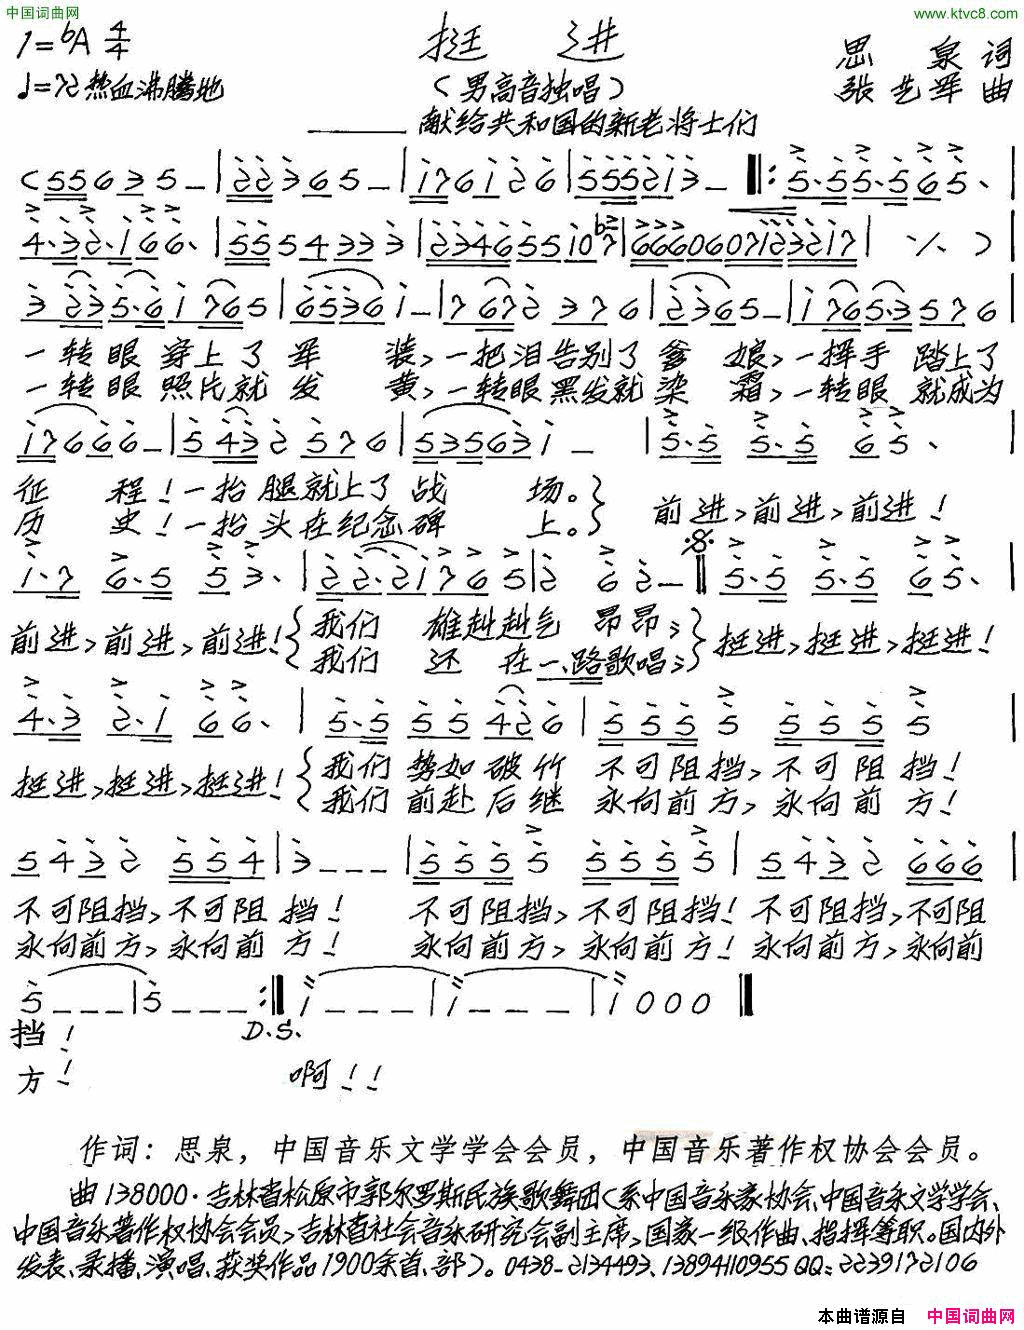 中国词曲网
www.ktvc8.com
1=bA 4/4
挺进
思泉词
♩=72 热血沸腾地
（男高音独唱）
张艺军曲
——献给共和国的新老将士们
一转眼穿上了军装，一把泪告别了爹娘，一挥手踏上了
一转眼照片就发黄，一转眼黑发就染霜，一转眼就成为
征程！一抬腿就上了战场。
历史！一抬头在纪念碑上。
前进，前进，前进！
前进，前进，前进！
我们雄赳赳气昂昂；
我们还在一路歌唱；
挺进，挺进，挺进！
挺进，挺进，挺进！
我们势如破竹不可阻挡，不可阻挡！
我们前赴后继永向前方，永向前方！
不可阻挡，不可阻挡！不可阻挡，不可阻挡！不可阻挡，不可阻
永向前方，永向前方！永向前方，永向前方！永向前方，永向前
挡！
D.S.
方！啊！！
作词：思泉，中国音乐文学学会会员，中国音乐著作权协会会员。
曲138000·吉林省松原市郭尔罗斯民族歌舞团（系中国音乐家协会、中国音乐文学学会、
中国音乐著作权协会会员，吉林省社会音乐研究会副主席，国家一级作曲、指挥兼职。国内外
发表、录播、演唱、获奖作品1900余首、部）。0438-2134493、13894110955 QQ：2239172106
本曲谱源自 中国词曲网